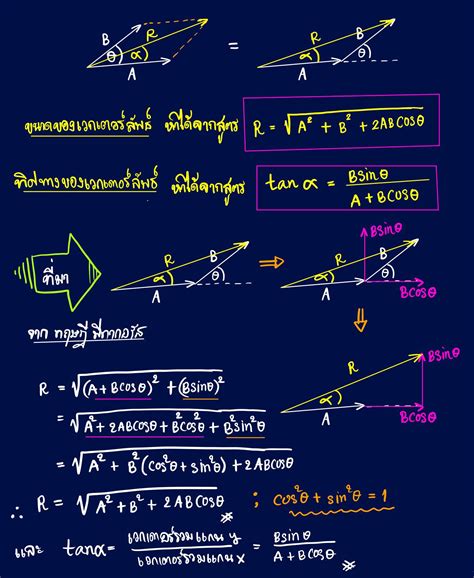 B R θ α A = R B α θ A
ขนาดของเวกเตอร์ลัพธ์ หาได้จากสูตร R = √(A² + B² + 2ABcosθ)
ทิศทางของเวกเตอร์ลัพธ์ หาได้จากสูตร tan α = Bsinθ / (A + Bcosθ)
ที่มา R B α θ A ⇒ Bsinθ R B α θ A Bcosθ
จาก ทฤษฎีพีทากอรัส
R Bsinθ α A Bcosθ
R = √((A + Bcosθ)² + (Bsinθ)²)
= √(A² + 2ABcosθ + B²cos²θ + B²sin²θ)
= √(A² + B²(cos²θ + sin²θ) + 2ABcosθ)
∴ R = √(A² + B² + 2ABcosθ) ; cos²θ + sin²θ = 1
และ tanα = เวกเตอร์รวมแกน y / เวกเตอร์รวมแกน x = Bsinθ / (A + Bcosθ)